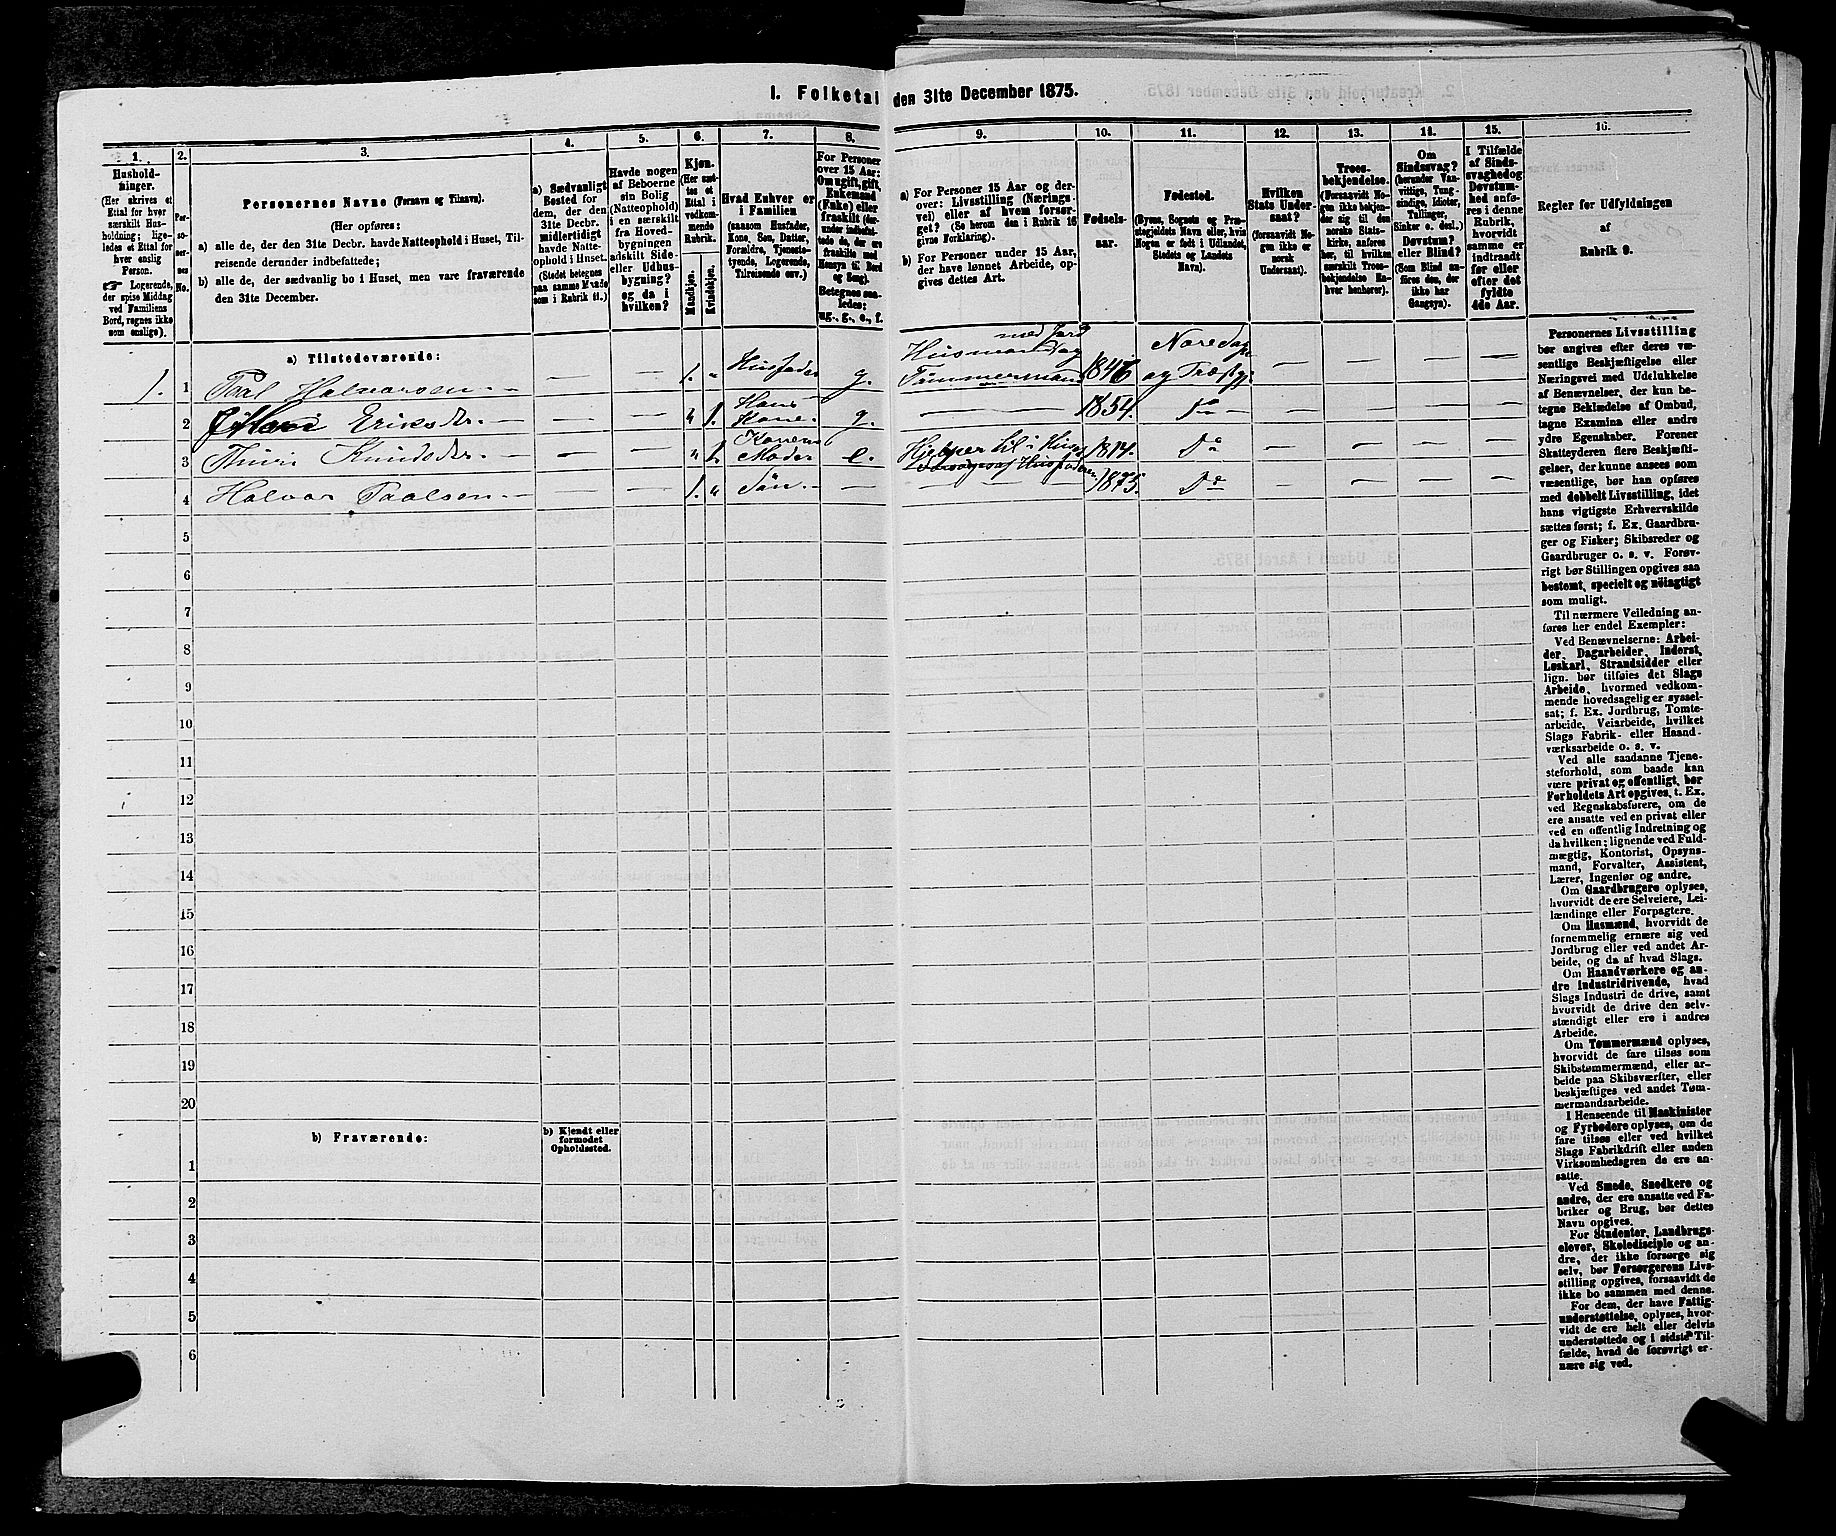 I. Folketal den 31te December 1875.
1. 2. 3. 4. 5. 6. 7. 8. 9. 10. 11. 12. 13. 14. 15. 16.
Husholdninger.
(Her skrives et
Ettal for hver
særskilt Husholdning;
ligeledes et Ettal for
hver enslig
Person.
☞ Logerende,
der spise Middag
ved Familiens
Bord, regnes ikke
som enslige).
Personernes No.
Personernes Navne (Fornavn og Tilnavn).
(Her opføres:
a) alle de, der den 31te Decbr. havde Natteophold i Huset, Tilreisende
derunder indbefattede;
b) alle de, der sædvanlig bo i Huset, men vare fraværende
den 31te December.
a) Sædvanligt
Bosted for
dem, der den
31te Decbr.
midlertidigt
havde Natteophold
i Huset.
(Stedet betegnes
paa samme Maade
som i Rubrik 11.)
Havde nogen
af Beboerne
sin Bolig
(Natteophold)
i en særskilt
fra Hovedbygningen
adskilt Side-
eller Udhusbygning?
og da i
hvilken?
Kjøn.
(Her sættes
et
Ettal i
vedkommende
Rubrik.
Mandkjøn.
Kvindekjøn.
Hvad Enhver er
i Familien
(saasom Husfader,
Kone, Søn, Datter,
Forældre, Tjenestetyende,
Logerende,
Tilreisende osv.)
For Personer
over 15 Aar:
Om ugift, gift,
Enkemand
(Enke) eller
fraskilt (derunder
indbefattede
de, der ere
fraskilte med
Hensyn til Bord
og Seng).
Betegnes saaledes:
ug., g., e., f.
a) For Personer 15 Aar og derover:
Livsstilling (Næringsvei)
eller af hvem forsørget?
(Se herom den i Rubrik 16
givne Forklaring).
b) For Personer under 15 Aar,
der have lønnet Arbeide, opgives
dettes Art.
Fødselsaar.
Fødested.
(Byens, Sognets og Præstegjeldets
Navn eller, hvis
Nogen er født i Udlandet,
Stedets og Landets
Navn).
Hvilken
Stats Undersaat?
(forsaavidt Nogen
ikke er
norsk
Undersaat).
Troesbekjendelse.
(Forsaavidt Nogen
ikke bekjender
sig til den
norske Statskirke,
anføres
her, til hvilken
særskilt Troesbekjendelse
Enhver
henhører).
Om
Sindssvag?
(herunder Vanvittige,
Tungsindige,
Idioter,
Tullinger,
Sinker o. desl.)
Døvstum?
eller Blind?
(Som Blind anføres
den, der
ikke har
Gangsyn).
I Tilfælde
af Sindssvaghed
og
Døvstumhed
anføres
i denne
Rubrik,
hvorvidt
samme er
indtraadt
før eller
efter det
fyldte
4de Aar.
Regler for Udfyldningen
af
Rubrik 9.
a) Tilstedeværende:
1. 1 Paal Halvorsen – – – 1. „ Husfader g. Husmand med Jord og Tømmermand 1846 Noredag og
2 Eriksdr. – – – „ 1. Hans Kone – g. – 1854. Do – – – –
3 Thuri Knudsdr. – – – „ 1. Konens Moder – e. Hjelper til i Huset 1814. Do – – – –
4 Halvor Paalsen – – – 1. „ Søn – – – 1875. Do – – – –
5
6
7
8
9
10
11
12
13
14
15
16
17
18
19
20
b) Fraværende:
b) Kjendt eller
formodet
Opholdssted.
1
2
3
4
5
6
Personernes Livsstilling
bør angives efter deres væsentlige
Beskjæftigelse eller
Næringsvei med Udelukkelse
af Benævnelser, der kun betegne
Beklædelse af Ombud,
tagne Examina eller andre
ydre Egenskaber. Forener
Skatteyderen flere Beskjæftigelser,
der kunne ansees som
væsentlige, bør han opføres
med dobbelt Livsstilling, idet
hans vigtigste Erhvervskilde
sættes først; f. Ex. Gaardbruger
og Fisker; Skibsreder og
Gaardbruger o. s. v. Forøvrigt
bør Stillingen opgives saa
bestemt, specielt og nøiagtigt
som muligt.
Til nærmere Veiledning anføres
her endel Exempler:
Ved Benævnelserne: Arbeider,
Dagarbeider, Inderst,
Løskarl, Strandsidder eller
lign. bør tilføies det Slags
Arbeide, hvormed vedkommende
hovedsagelig er sysselsat;
f. Ex. Jordbrug, Tomtearbeide,
Veiarbeide, hvilket
Slags Fabrik- eller Haandværksarbeide
o. s. v.
Ved alle saadanne Tjenesteforhold,
som baade kan
være privat og offentligt, bør
Forholdets Art opgives, t. Ex.
ved Regnskabsførere, om de
ere ansatte ved en privat eller
ved en offentlig Indretning og
da hvilken; lignende ved Fuldmægtig,
Kontorist, Opsynsmand,
Forvalter, Assistent,
Lærer, Ingeniør og andre.
Om Gaardbrugere oplyses,
hvorvidt de ere Selveiere, Leilændinge
eller Forpagtere.
Om Husmænd, hvorvidt de
fornemmelig ernære sig ved
Jordbrug eller ved andet Arbeide,
og da af hvad Slags.
Om Haandværkere og andre
Industridrivende, hvad
Slags Industri de drive, samt
hvorvidt de drive den selvstændigt
eller ere i andres
Arbeide.
Om Tømmermænd oplyses,
hvorvidt de fare tilsøs som
Skibstømmermænd, eller arbeide
paa Skibsværfter, eller
beskjæftiges ved andet Tømmermandsarbeide.
I Henseende til Maskinister
og Fyrbødere oplyses, om de
fare tilsøs eller ved hvilket
Slags Fabrikdrift eller anden
Virksomhedsgren de ere ansatte.
Ved Smede, Snedkere og
andre, der ere ansatte ved Fabriker
og Brug, bør dettes
Navn opgives.
For Studenter, Landbrugselever,
Skoledisciple og andre,
der ikke forsørge sig
selv, bør Forsørgerens Livsstilling
opgives, forsaavidt de
ikke bo sammen med denne.
For dem, der have Fattigunderstøttelse,
oplyses, hvorvidt
de ere helt eller delvis
understøttede og i sidste Tilfælde,
hvad de forøvrigt ernære
sig ved.